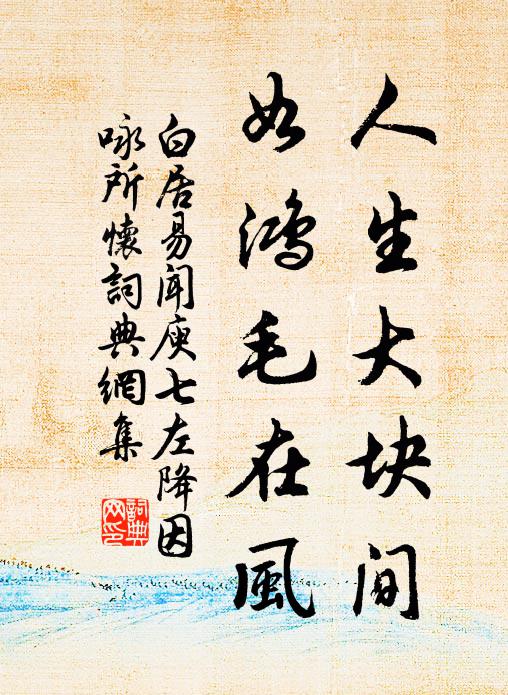 人生大块间
如鸿毛在風
白居易闻庾七左降因
咏所懷詞典網集
詞典
网印